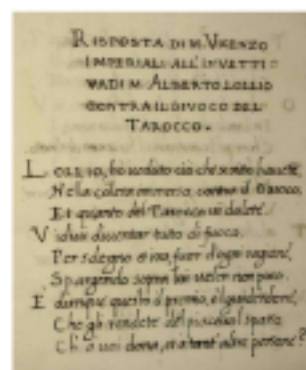 RISPOSTA DI M. VICENZO
IMPERIALI ALL'INVETTI
VA DI M. ALBERTO LOLLIO
CONTRA IL GIUOCO DEL
TAROCCO.
LOLLIO, ho veduto ciò che scritto havete,
Nella colera immersa, contra il Giuoco,
Et quanto del Tarocco vi dolete.
Vidivi diventar tutto di fuoco,
Per sdegno et ira, fuor d'ogni ragione,
Spargendo sopra lui non poco.
E dunque questo il premio, e'l guiderdone,
Che gli rendete del piacer
Ch'a voi dona, et a tant'altre persone?